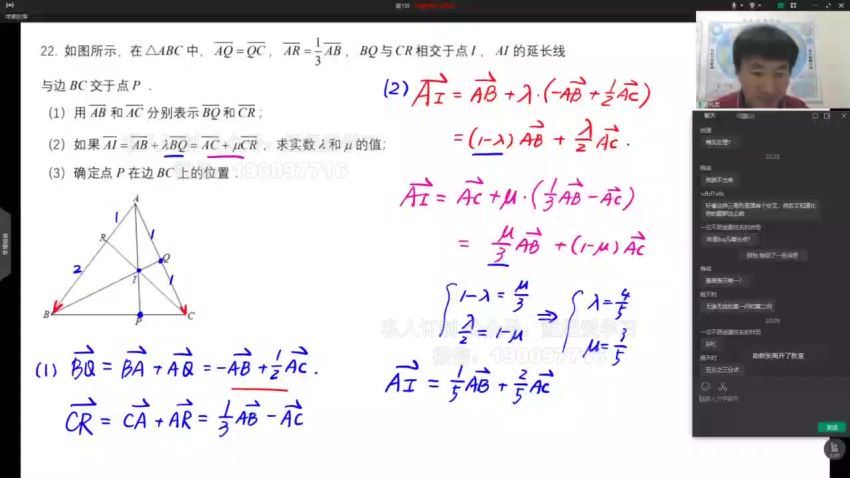 22. 如图所示，在 △ABC 中，\overrightarrow{AQ} = \overrightarrow{QC}，\overrightarrow{AR} = \frac{1}{3}\overrightarrow{AB}，BQ 与 CR 相交于点 I，AI 的延长线
与边 BC 交于点 P．
(1) 用 \overrightarrow{AB} 和 \overrightarrow{AC} 分别表示 \overrightarrow{BQ} 和 \overrightarrow{CR}；
(2) 如果 \overrightarrow{AI} = \overrightarrow{AB} + λ\overrightarrow{BQ} = \overrightarrow{AC} + μ\overrightarrow{CR}，求实数 λ 和 μ 的值；
(3) 确定点 P 在边 BC 上的位置．
A
1
1
R
Q
2
I
1
B
P
C
(1) \overrightarrow{BQ} = \overrightarrow{BA} + \overrightarrow{AQ} = -\overrightarrow{AB} + \frac{1}{2}\overrightarrow{AC}.
\overrightarrow{CR} = \overrightarrow{CA} + \overrightarrow{AR} = \frac{1}{3}\overrightarrow{AB} - \overrightarrow{AC}
(2) \overrightarrow{AI} = \overrightarrow{AB} + λ·(-\overrightarrow{AB} + \frac{1}{2}\overrightarrow{AC})
= (1-λ)\overrightarrow{AB} + \frac{λ}{2}\overrightarrow{AC}.
\overrightarrow{AI} = \overrightarrow{AC} + μ·(\frac{1}{3}\overrightarrow{AB} - \overrightarrow{AC})
= \frac{μ}{3}\overrightarrow{AB} + (1-μ)\overrightarrow{AC}
{ 1-λ = \frac{μ}{3} ⇒ { λ = \frac{4}{5}
\frac{λ}{2} = 1-μ μ = \frac{3}{5}
\overrightarrow{AI} = \frac{1}{5}\overrightarrow{AB} + \frac{2}{5}\overrightarrow{AC}
微信：190097716
聊天
梅氏定理？
BPC
助教张离开了教室
五分之三分点
发送